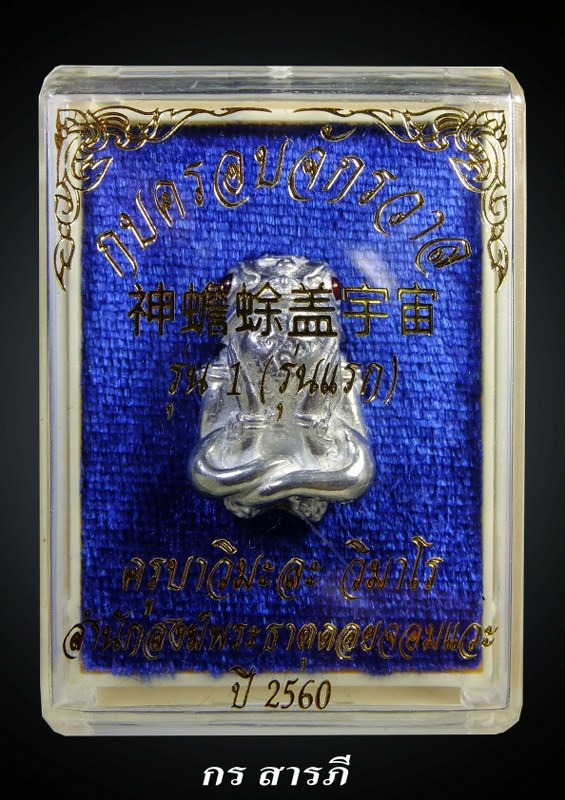 กบครอบจักรวาล
神蟾蜍盖宇宙
รุ่น 1 (รุ่นแรก)
ครูบาวิมะละ วิมาโร
สำนักสงฆ์พระธาตุดอยจอมแวะ
ปี 2560
กร สารภี